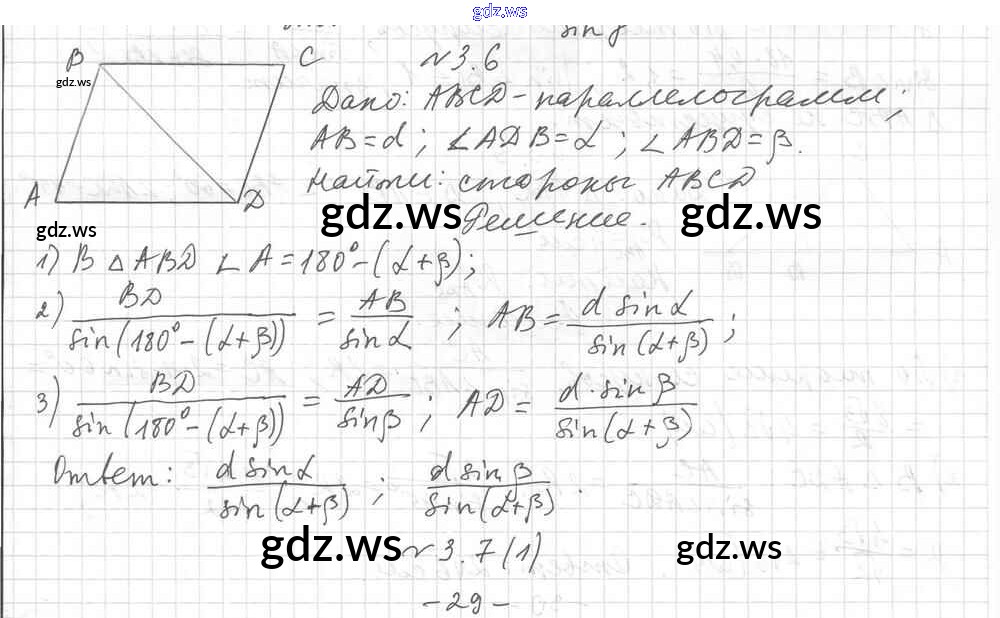 gdz.ws
B C
gdz.ws
A D
gdz.ws
№ 3.6
Дано: ABCD - параллелограмм;
AB = d; ∠ADB = α; ∠ABD = β.
Найти: стороны ABCD
gdz.ws gdz.ws
Решение.
1) В △ ABD ∠A = 180° - (α + β);
2) BD / sin(180° - (α + β)) = AB / sin α; AB = d sin α / sin(α + β);
3) BD / sin(180° - (α + β)) = AD / sin β; AD = d · sin β / sin(α + β)
Ответ: d sin α / sin(α + β); d sin β / sin(α + β).
gdz.ws gdz.ws
№ 3.7 (1)
- 29 -